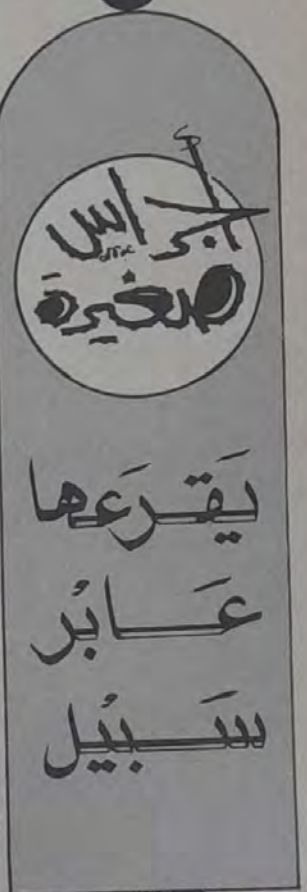 أجراس
صغيرة
يَقرَعها
عَابُر
سَبيُل